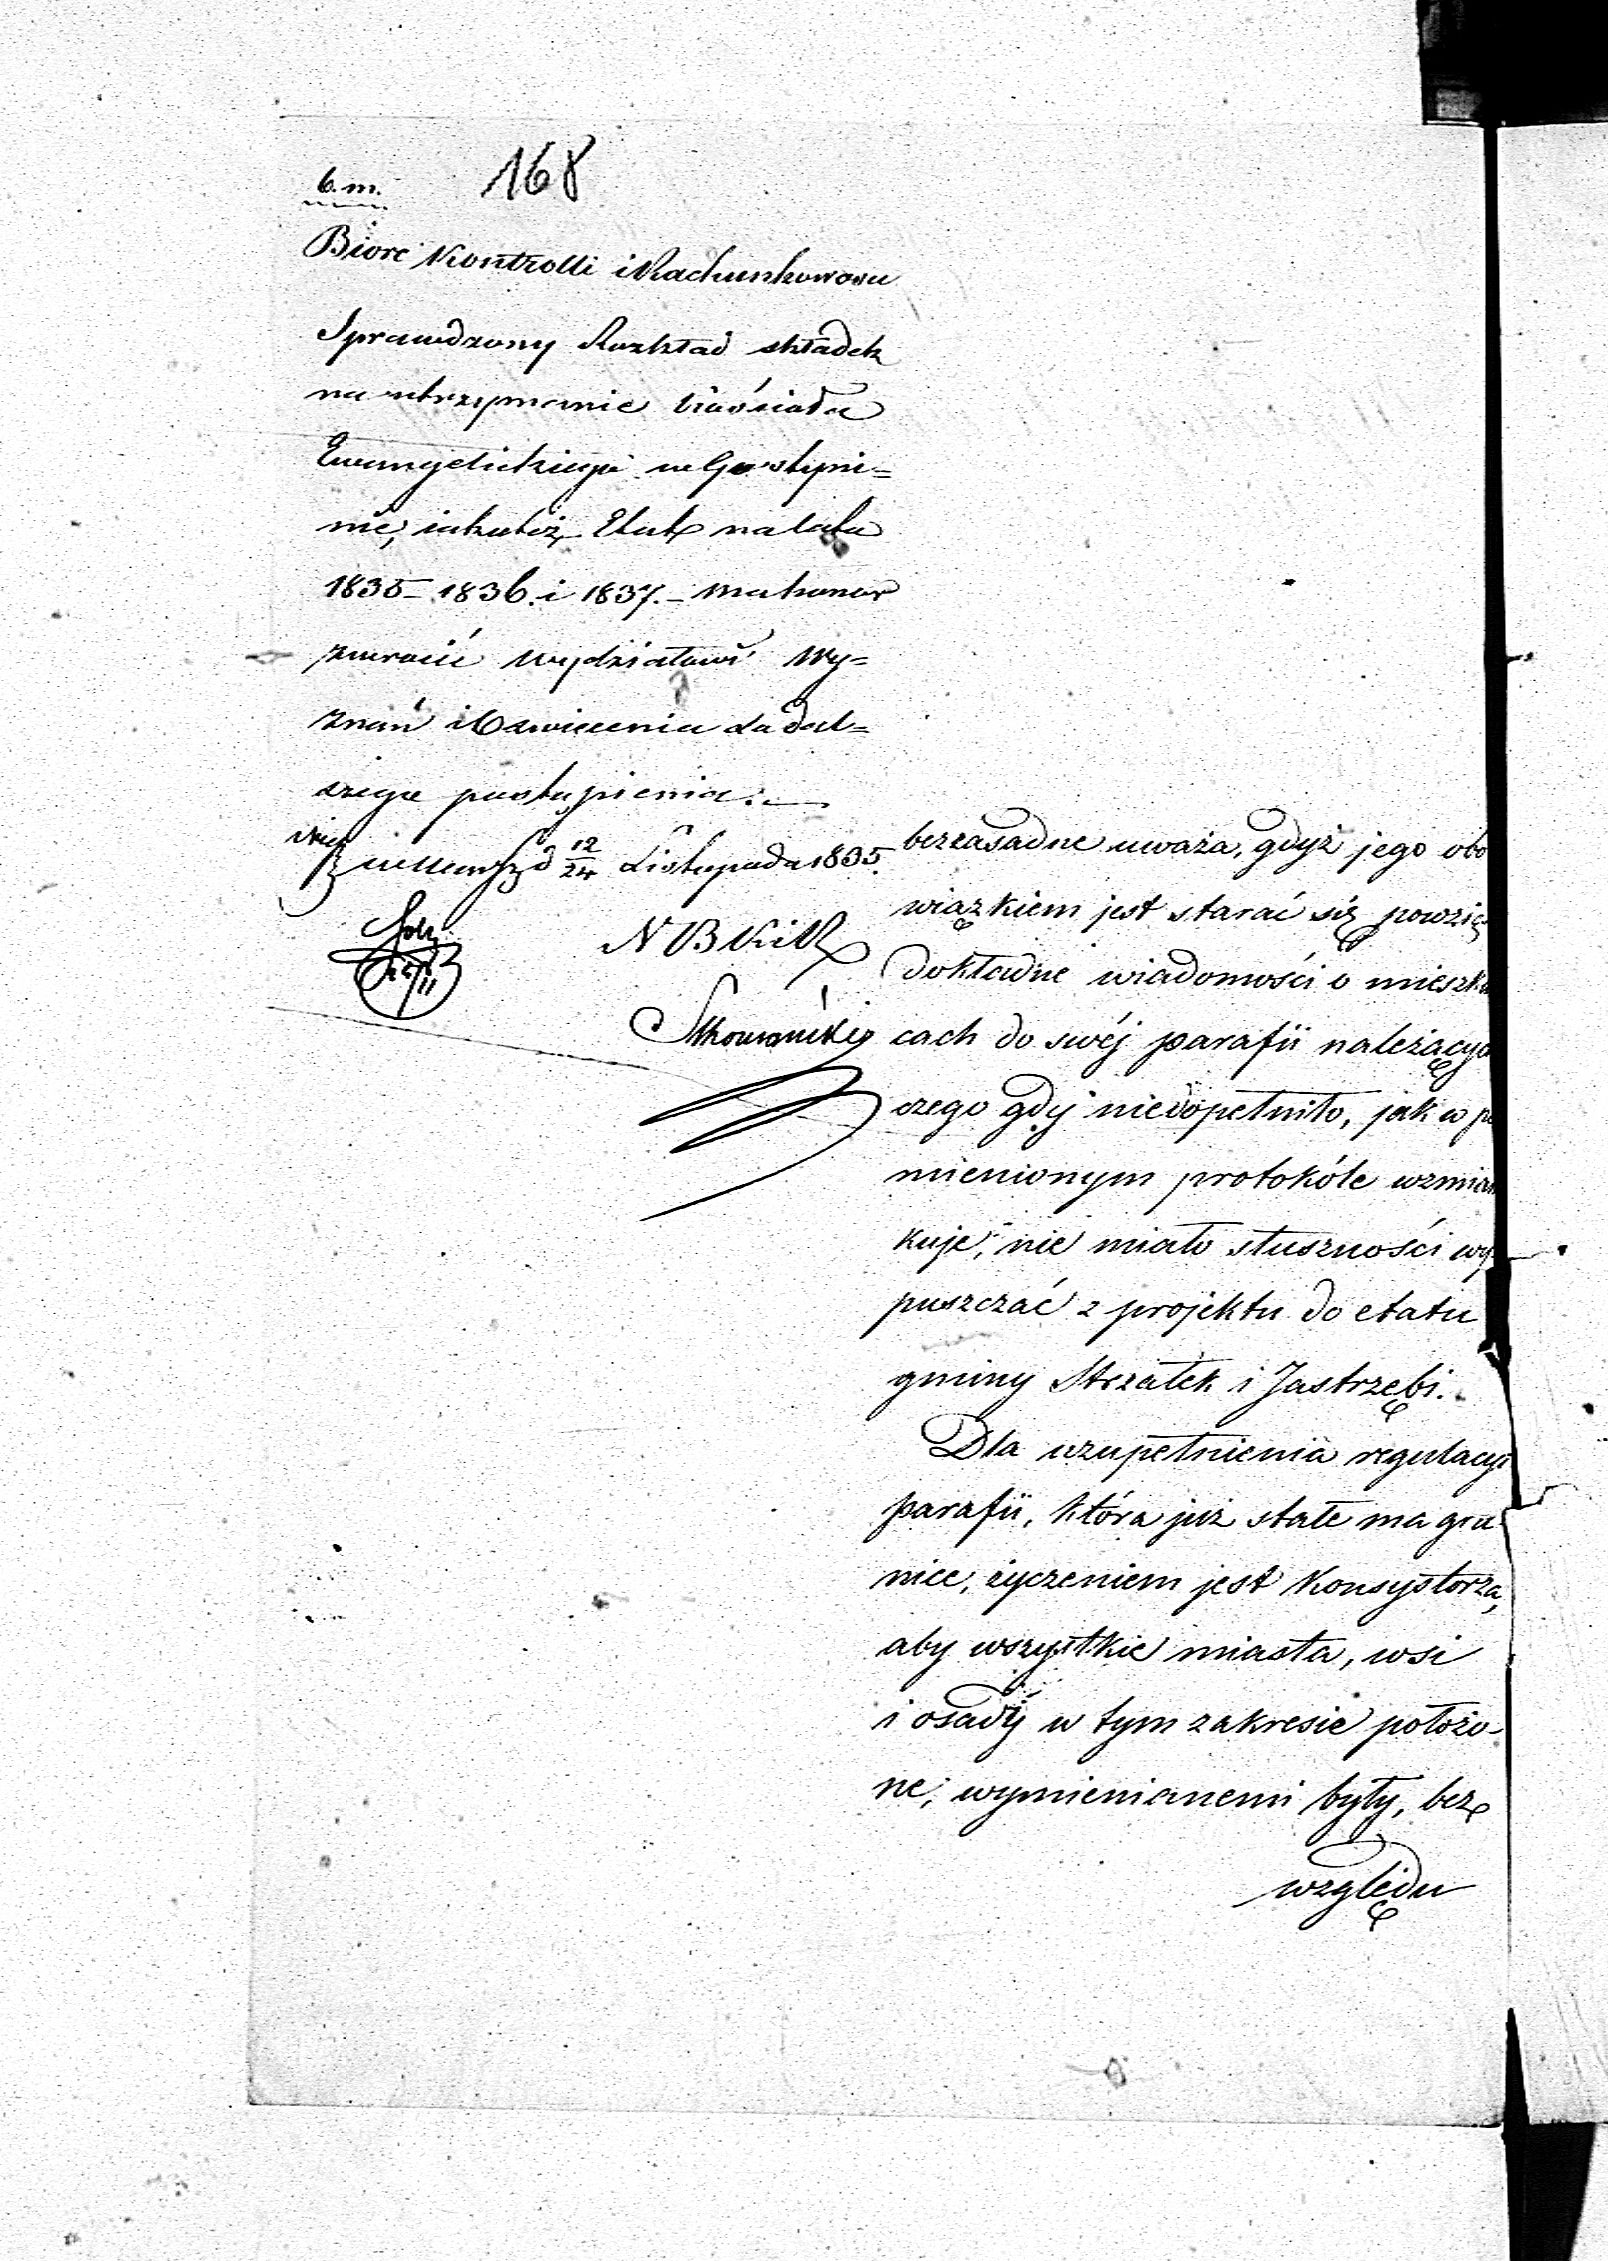 168
b. m.
Bióro Kontrolli i Rachunkowości
Sprawdzony Rozkład składek
na utrzymanie Kościoła
Ewangelickiego w Gostyni=
nie, iakoteż Etat na lata
1835 - 1836. i 1837. - ma honor
zwrócić Wydziałowi Wy=
znań i Oświecenia do dal=
szego postąpienia. -
w Warszawie d 12/24 Listopada 1835.
NBKiR
bezzasadne uważa, gdyż jego obo
wiązkiem jest starać się powzią
dokładne wiadomości o mieszka
cach do swéj parafii należącyc
czego gdy niedopełniło, jak w po
mienionym protokóle wzmian
kuje, nie miało słuszności wy
puszczać z projektu do etatu
gminy Strzałek i Jastrzębi.
Dla uzupełnienia regulacyi
parafii, która już stałe ma gra
nice, życzeniem jest Konsystorza,
aby wszystkie miasta, wsi
i osady w tym zakresie położo-
ne, wymienianemi były, bez
względu